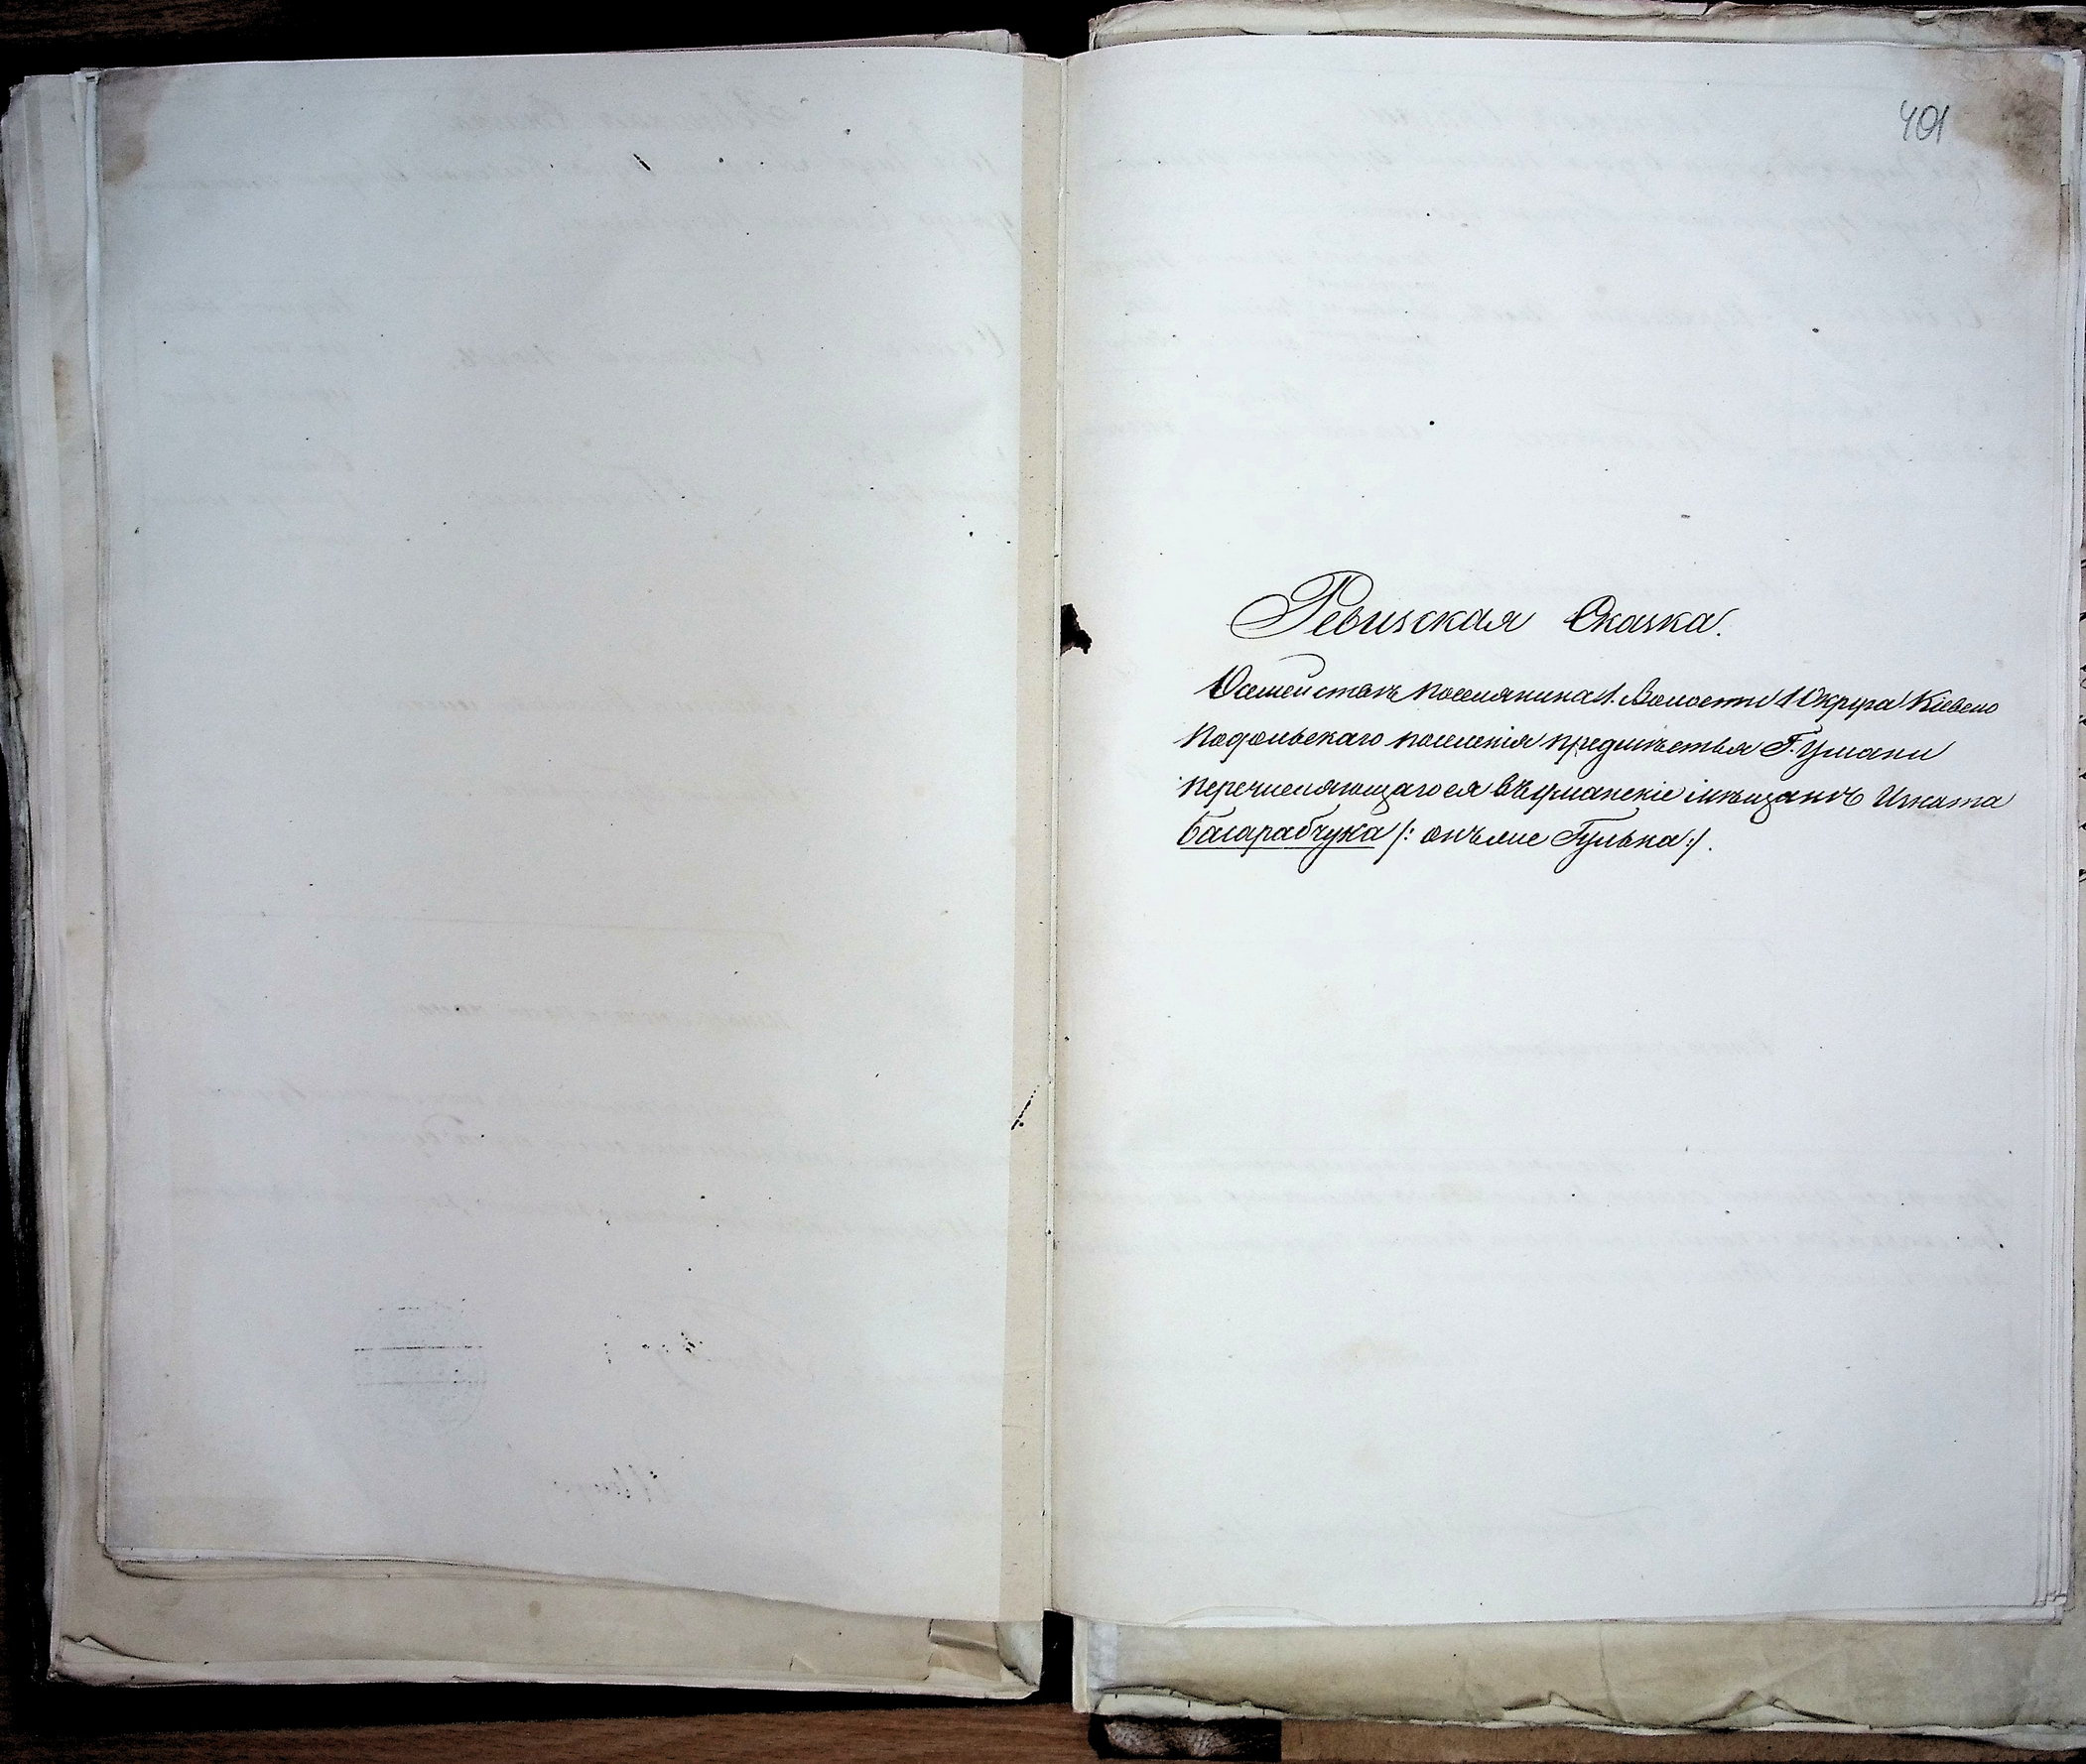 401
Ревизская Сказка.
О семействѣ поселянина 1. Волости 1 Округа Кіевско
Подольскаго поселенія предмѣстья Г. Умани
перечисляющагося въ уманскіе мѣщане Игната
Басарабчука /: онъ же Гулька :/.